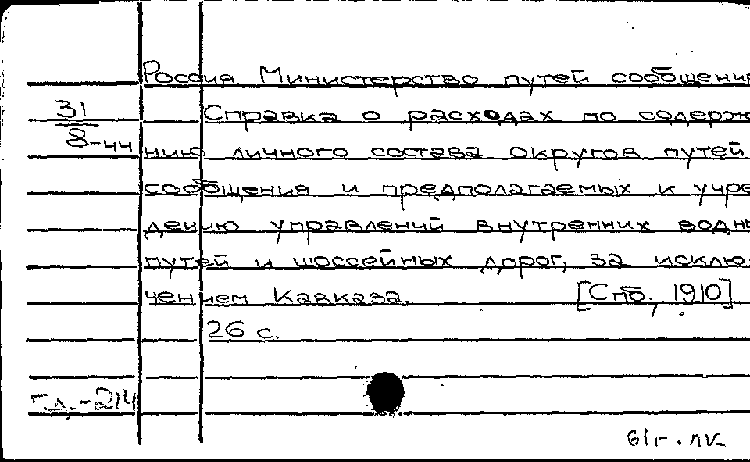 Россия Министерство путей сообщения
31
8-44
Справка о расходах по содерж
нию личного состава округов путей
сообщения и предполагаемых к учре
дению управлений внутренних водны
путей и шоссейных дорог, за исклю-
чением Кавказа. [Спб., 1910]
26 с.
г.д.-214
61г.